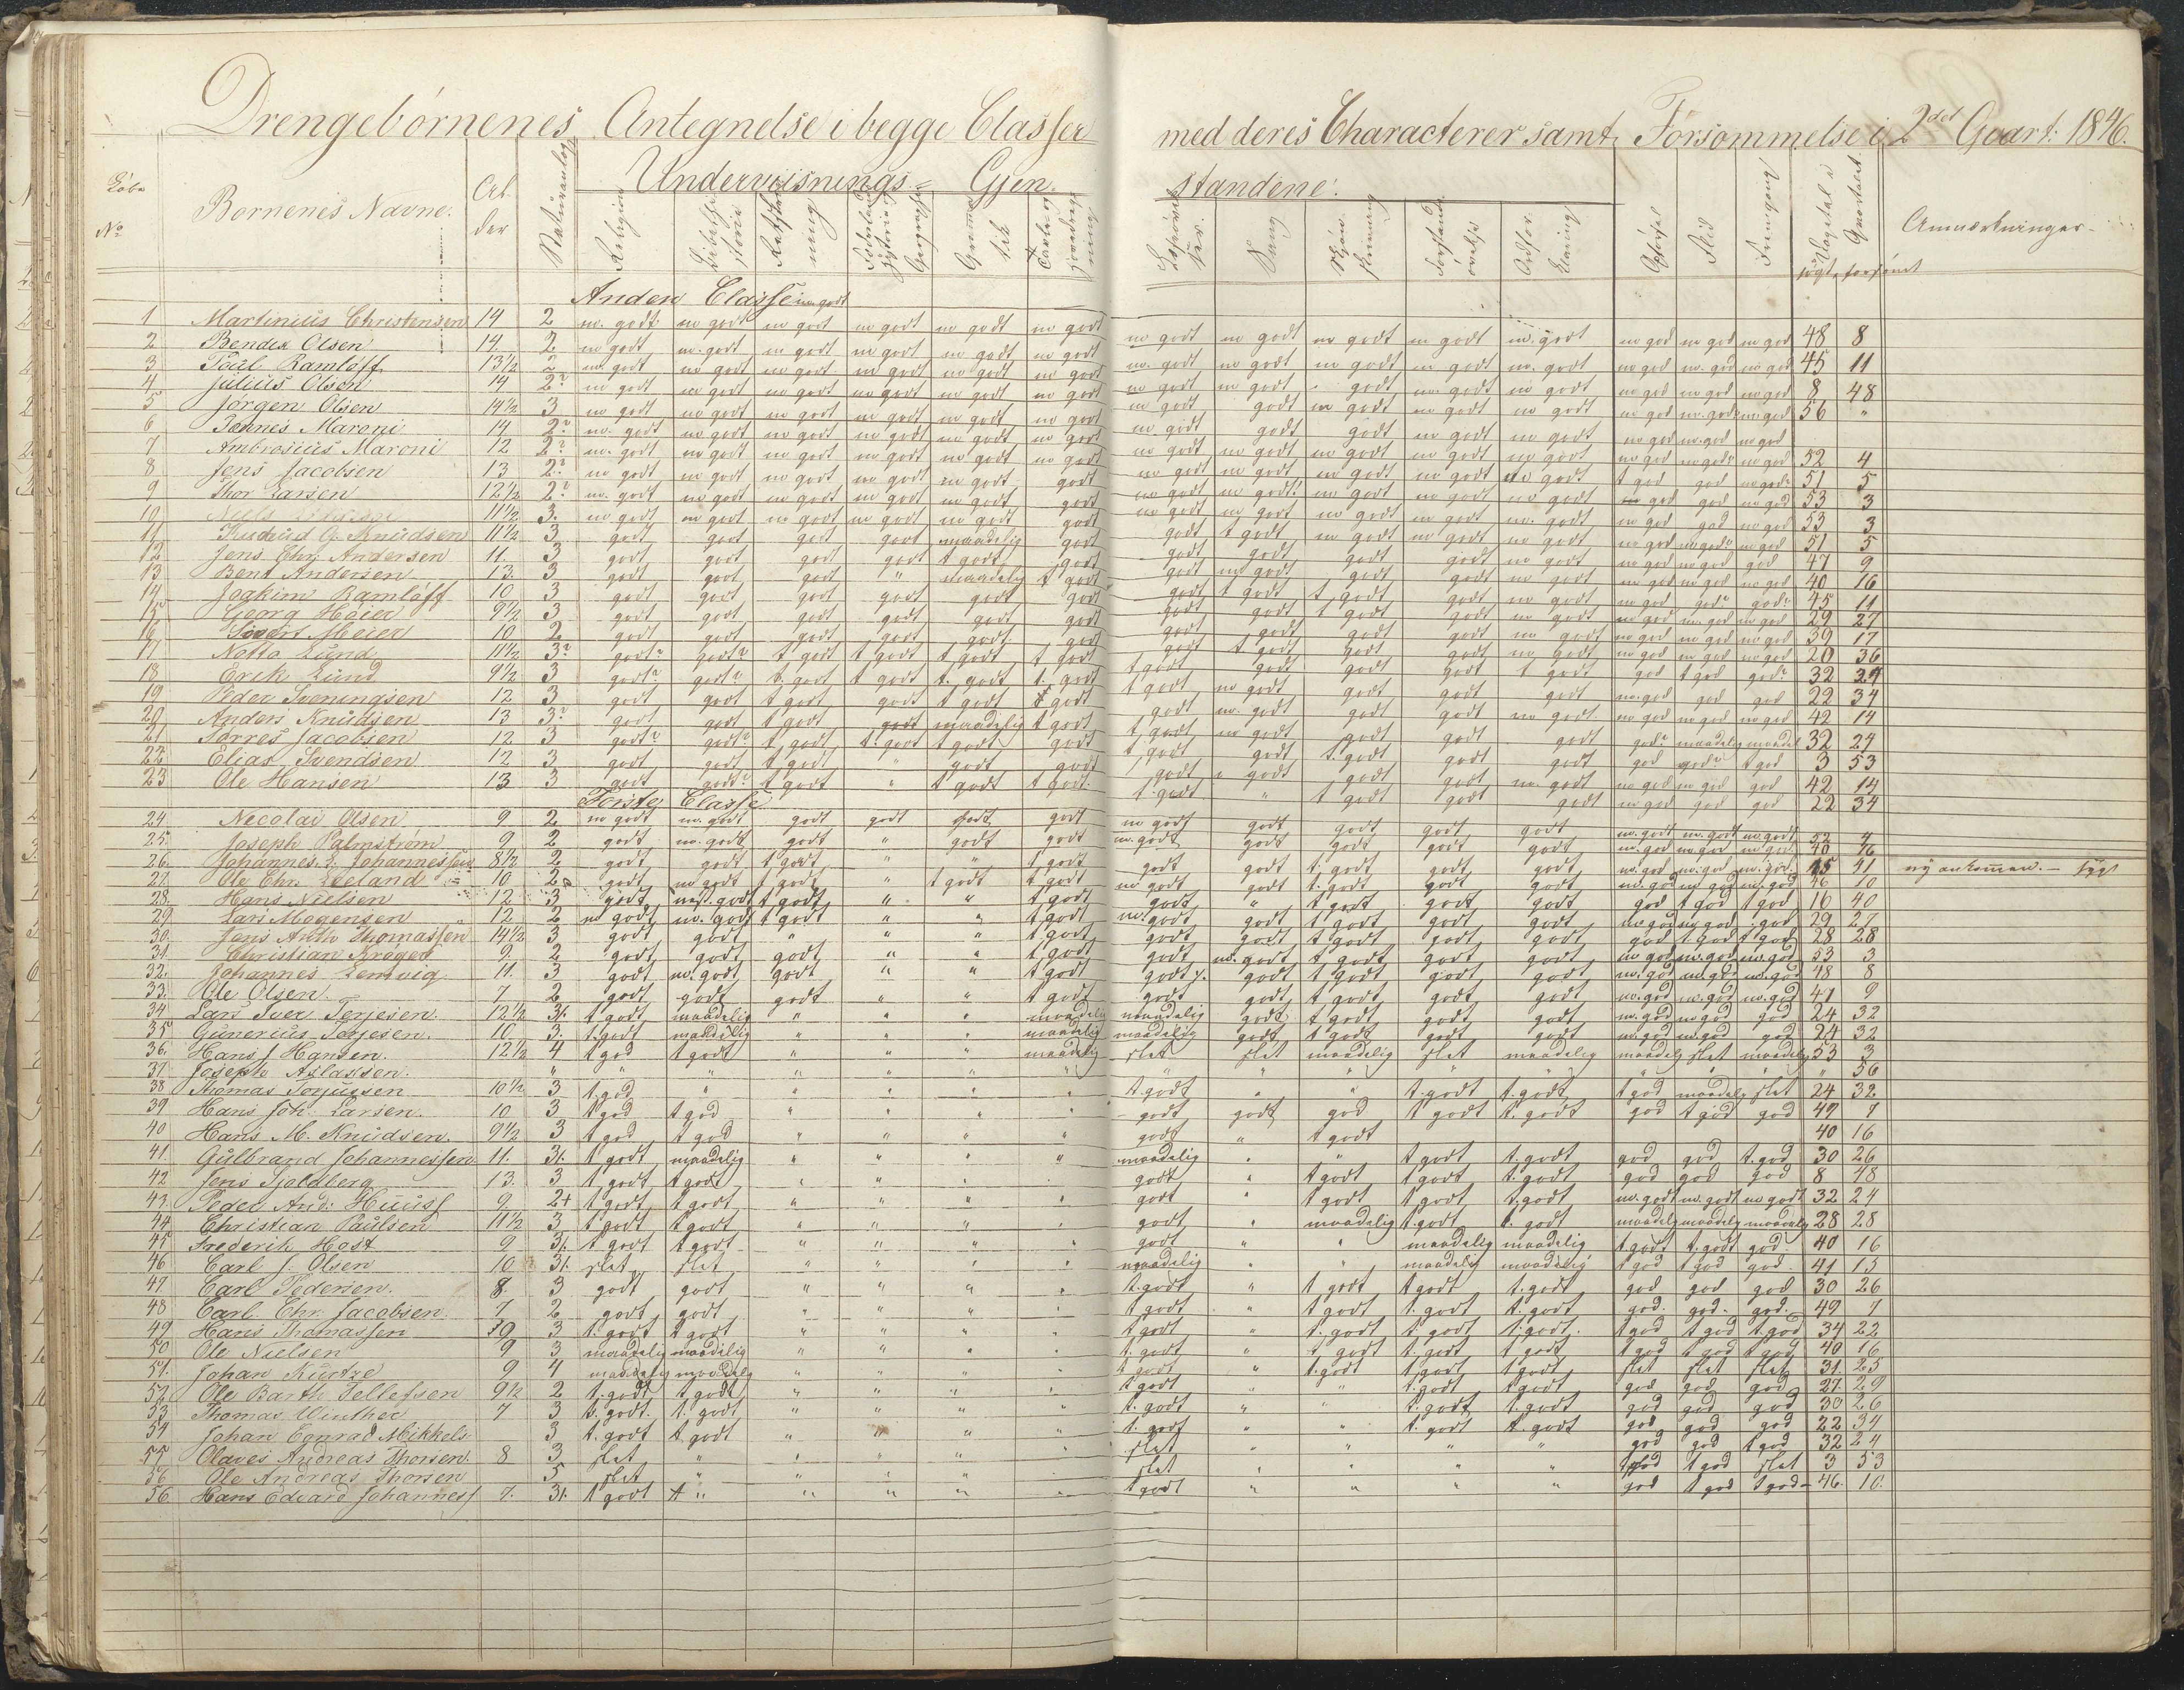 Drengebörnenes Antegnelse i begge Classer med deres Characterer samt Forsömmelse i 2det Qvart: 1846.
Löbe No Börnenes Navne. Al- der Naturanlæg Underviisnings- Gjenstandene: Religion Sang Opförsel Flid Fremgang Anmærkninger
Anden Classe
1 Martinius Christensen 14 2 m. godt m godt m godt m godt m godt m godt m godt m godt m godt m godt m. godt m god m god m god 48 8
2 Bendix Olsen 14 2 m godt m. godt m godt m godt m godt m godt m. godt m godt m godt m godt m. godt m god m. god m god 45 11
3 Poul Ramlöff 13 1/2 2 m godt m godt m godt m godt m godt m godt m godt m godt godt m godt m godt m god m god m god 8 48
4 Julius Olsen 14 2? m godt m godt m godt m godt m godt m godt m godt godt m godt m godt m godt m god m god m god 56 "
5 Jörgen Olsen 14 1/2 3 m godt m godt m godt m godt m godt m godt m godt godt godt m godt m godt m god m god m god
6 Tönnes Maroni 14 2? m. godt m godt m godt m godt m godt m godt m godt m godt m godt m godt m godt m god m god m god 52 4
7 Ambrosius Maroni 12 2? m. godt m godt m godt m godt m godt m godt m godt m godt m godt m godt m godt t god god m god 51 5
8 Jens Jacobsen 13 2? m godt m godt m godt m godt m godt godt m godt m godt m godt m godt m godt m god god m god 53 3
9 Thor Larsen 12 1/2 2? m. godt m godt m godt m godt m godt godt m godt m godt m godt m godt m. godt m god god m god 53 3
10 11 1/2 3. m godt m godt m godt m godt m godt godt godt t godt m godt m godt m godt m god m god m god 51 5
11 Knud G. Knudsen 11 1/2 3 godt godt godt godt maadelig godt godt godt godt godt m godt m god m god god 47 9
12 Jens Chr. Andersen 11. 3 godt godt godt godt t godt godt godt m godt godt godt m godt m god m god m god 40 16
13 Bent Andersen 13. 3 godt godt godt " maadelig t godt godt t godt t godt godt m godt m god god god 45 11
14 Joakim Ramlöff 10 3 godt godt godt godt godt godt godt godt t godt godt m godt m god m god m god 29 27
15 Georg Höier 9 1/2 3 godt godt godt godt godt godt godt godt godt godt m godt m god m god m god 39 17
16 Sivert Meier 10 2 godt godt godt godt godt godt godt t godt godt godt m godt m god m god m god 20 36
17 Notto Lund 11 1/2 3? godt? godt? t godt t godt t godt t godt t godt godt godt godt t godt god t god god? 32 24
18 Erik Lund 9 1/2 3 godt? godt? t. godt t godt t. godt t. godt t godt m godt godt godt godt m. god god god 22 34
19 Peder Sveningsen 12 3 godt godt t godt godt t godt t godt godt m. godt godt godt m godt m god m god m god 42 14
20 Anders Knudsen 13 3? godt godt t godt godt maadelig t godt t godt m godt godt godt godt god? maadelig maadel 32 24
21 Törres Jacobsen 12 3 godt? godt? t godt t. godt t godt godt t godt godt t. godt godt godt god god t god 3 53
22 Elias Svendsen 12 3 godt godt t godt " godt godt godt godt godt godt m. godt m god m god god 42 14
23 Ole Hansen 13 3 godt godt? t godt " t godt t godt t. godt " t godt godt godt m god god god 22 34
Förste Classe
24 Necolai Olsen 9 2 m godt m. godt godt godt godt godt m godt godt godt godt godt m. godt m. godt m. godt 52 4
25. Joseph Palmström 9 2 godt m. godt godt " godt godt m. godt godt godt godt godt m. god m. god m god 40 16
26. Johannes J. Johannessen 8 1/2 2 godt godt t godt " " t godt godt godt t. godt godt godt m. god m. god m. god 15 41 ny ankommen. — syg
27. Ole Chr. Eeland 10 2 godt m godt t godt " t godt t godt m godt godt t. godt godt godt m. god m god m. god 46 10
28. Hans Nielsen 12 3 godt m. godt t godt " " t godt godt " t godt godt godt god t god t god 16 40
29. Lars Mogensen 12 2 m godt m. godt t godt " " t godt m. godt godt t godt godt godt m god m god god 29 27
30. Jens Anth Thomassen 14 1/2 3 godt godt " " " t godt godt godt t godt godt godt god t. god t god 28 28
31. Christian Kröger 9. 2 godt godt godt " " t godt godt m. godt t godt godt godt m god m. god m. god 53 3
32. Johannes Lemvig 11. 3 godt m. godt godt " " t godt godt godt t godt godt godt m. god m. god m. god 48 8
33. Ole Olsen. 7 2 godt godt godt " " t godt godt godt t godt godt godt m. god m. god m. god 47 9
34 Lars Iver Terjesen. 12 1/2 3/. t godt maadelig " " " maadelig maadelig godt t godt godt godt m. god m god god 24 32
35 Gunerius Terjesen. 10 3. t. godt maadelig " " " maadelig maadelig godt t godt godt godt m. god m. god god 24 32
36. Hans J Hansen. 12 1/2 4 t god t godt " " " maadelig slet slet maadelig slet maadelig maadelig slet maadelig 53 3
37 Joseph Aslaksen. " " " " " " " " " " " " " " " 56
38 Thomas Torjussen 10 1/2 3 t. god " " " " " t. godt " " t. godt t. godt t god maadelig slet 24 32
39 Hans Joh. Larsen. 10 3 t god t god " " " " godt godt god t godt t. godt god t god god 49 7
40 Hans M. Knudsen. 9 1/2 3 t god t god " " " " godt " t godt 40 16
41. Gulbrand Johannessen 11. 3/. t godt maadelig " " " " maadelig " " t godt t. godt god god t. god 30 26
42 Jens Tjoldberg 13. 3 t godt t godt " " " " godt t godt t godt t. godt god god god 8 48
43. Peder And: Huuss 9 2+ t godt t godt " " " " godt " t godt t godt t. godt m. godt m. godt m godt 32 24
44 Christian Paulsen 11 1/2 3 t godt t godt " " " " godt " maadelig t. godt t. godt maadelig maadelig maadelig 28 28
45 Frederik Höst 9 3/. t godt t godt " " " " godt " " maadelig maadelig t. godt t. godt god 40 16
46 Carl J. Olsen 10 3/. slet slet " " " " maadelig " " maadelig maadelig t god t god god 41 15
47. Carl Pedersen. 8. 3 godt godt " " " " t. godt " t godt t godt t. godt god god god 30 26
48 Carl Chr. Jacobsen 7 2 godt godt " " " " t godt " t godt t. godt t. godt god. god. god. 49 7
49 Hans Thomassen 9 3 t. godt t godt " " " " t godt " t. godt t. godt t. godt. t god t god t god 34 22
50 Ole Nielsen 9 3 maadelig maadelig " " " " t. godt " t godt t. godt t godt t god t god t god 40 16
51. Johan Kurtze 9 4 maadelig maadelig " " " " t godt " t. godt t godt t godt slet slet slet 31. 25
52 Ole Barth Tellefsen 9 1/2 2 t. godt t godt " " " " t godt " " t. godt t godt god god god 27. 29
53 Thomas Winther 7 3 t. godt. t. godt " " " " t. godt " " t. godt t. godt god god god 30 26
54 Johan Conrad Mikkels 3 t. godt t. godt " " " " t. godt " " t. godt t. godt god god god 22 34
55 Olaves Andreas Thorsen. 8 3 slet " " " " " slet " " " " god god t god 32 24
56. Ole Andreas Thorsen 5 slet " " " " " slet " " " " t god t god slet 3 53
56 Hans Edvard Johanness 7. 3/. t godt t " " " " " t godt " " " " god t god t god 46. 10.